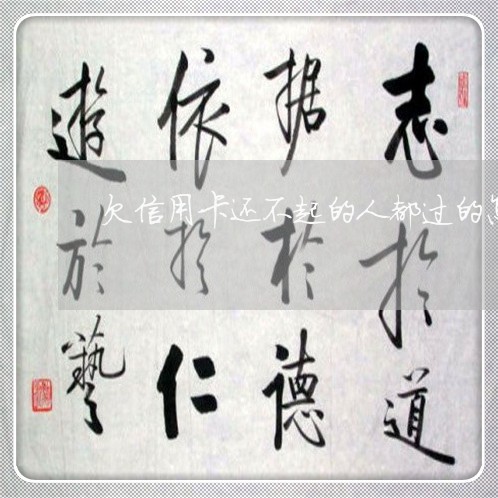 志於道
据於德
依於仁
遊於藝
欠信用卡还不起的人都过的